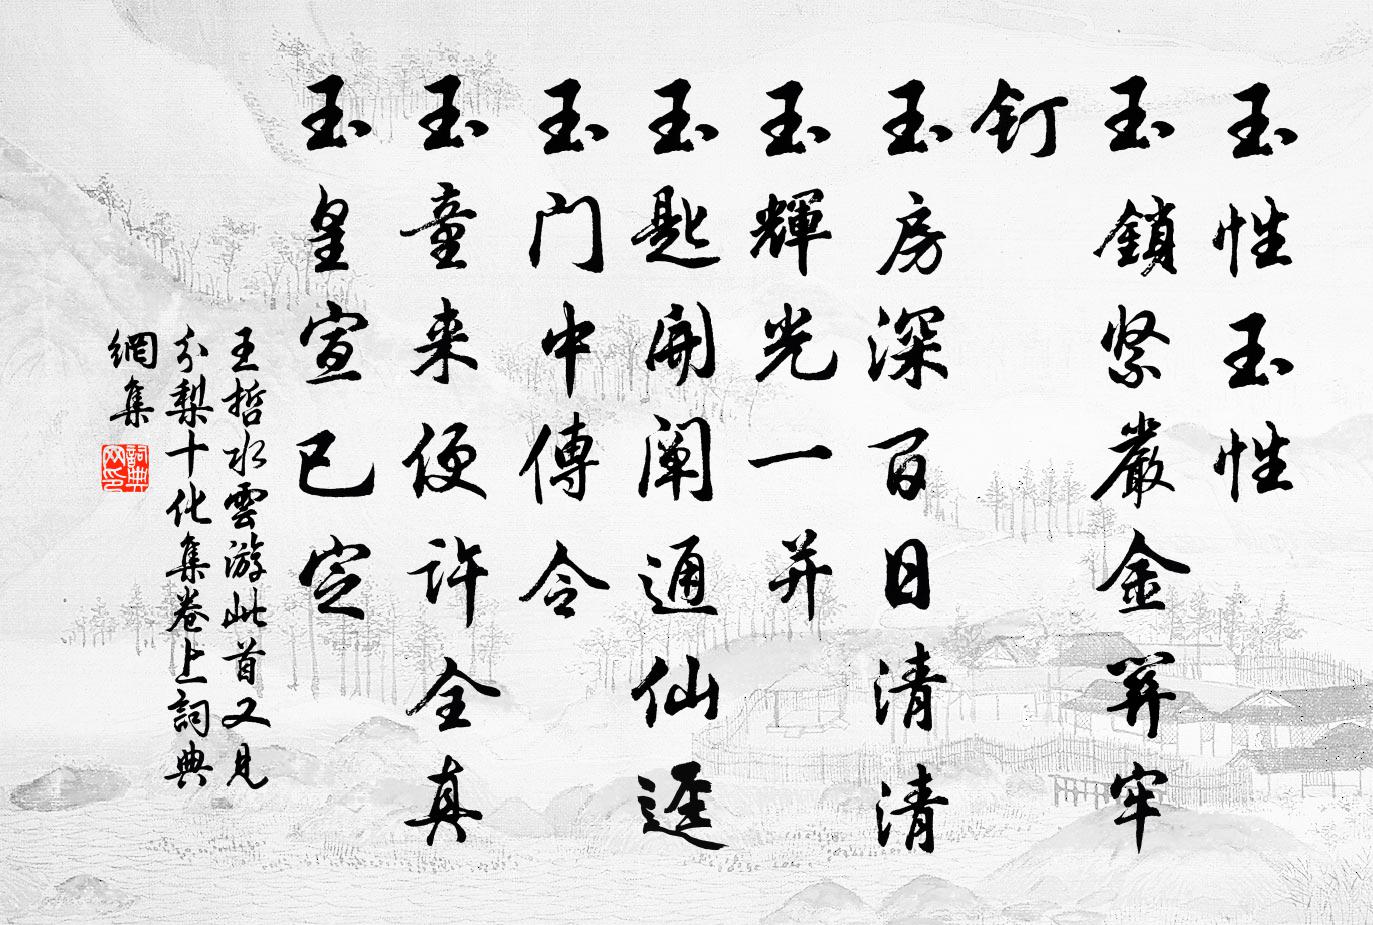 玉性玉性
玉鎖紧嚴金牢
釘
玉房深百日清清
玉輝光一并
玉匙開闡通仙逕
玉門中傳令
玉童来便許全真
玉皇宣已定
王哲水雲游此首又見
分梨十化集卷上詞典
網集
詞典
网印